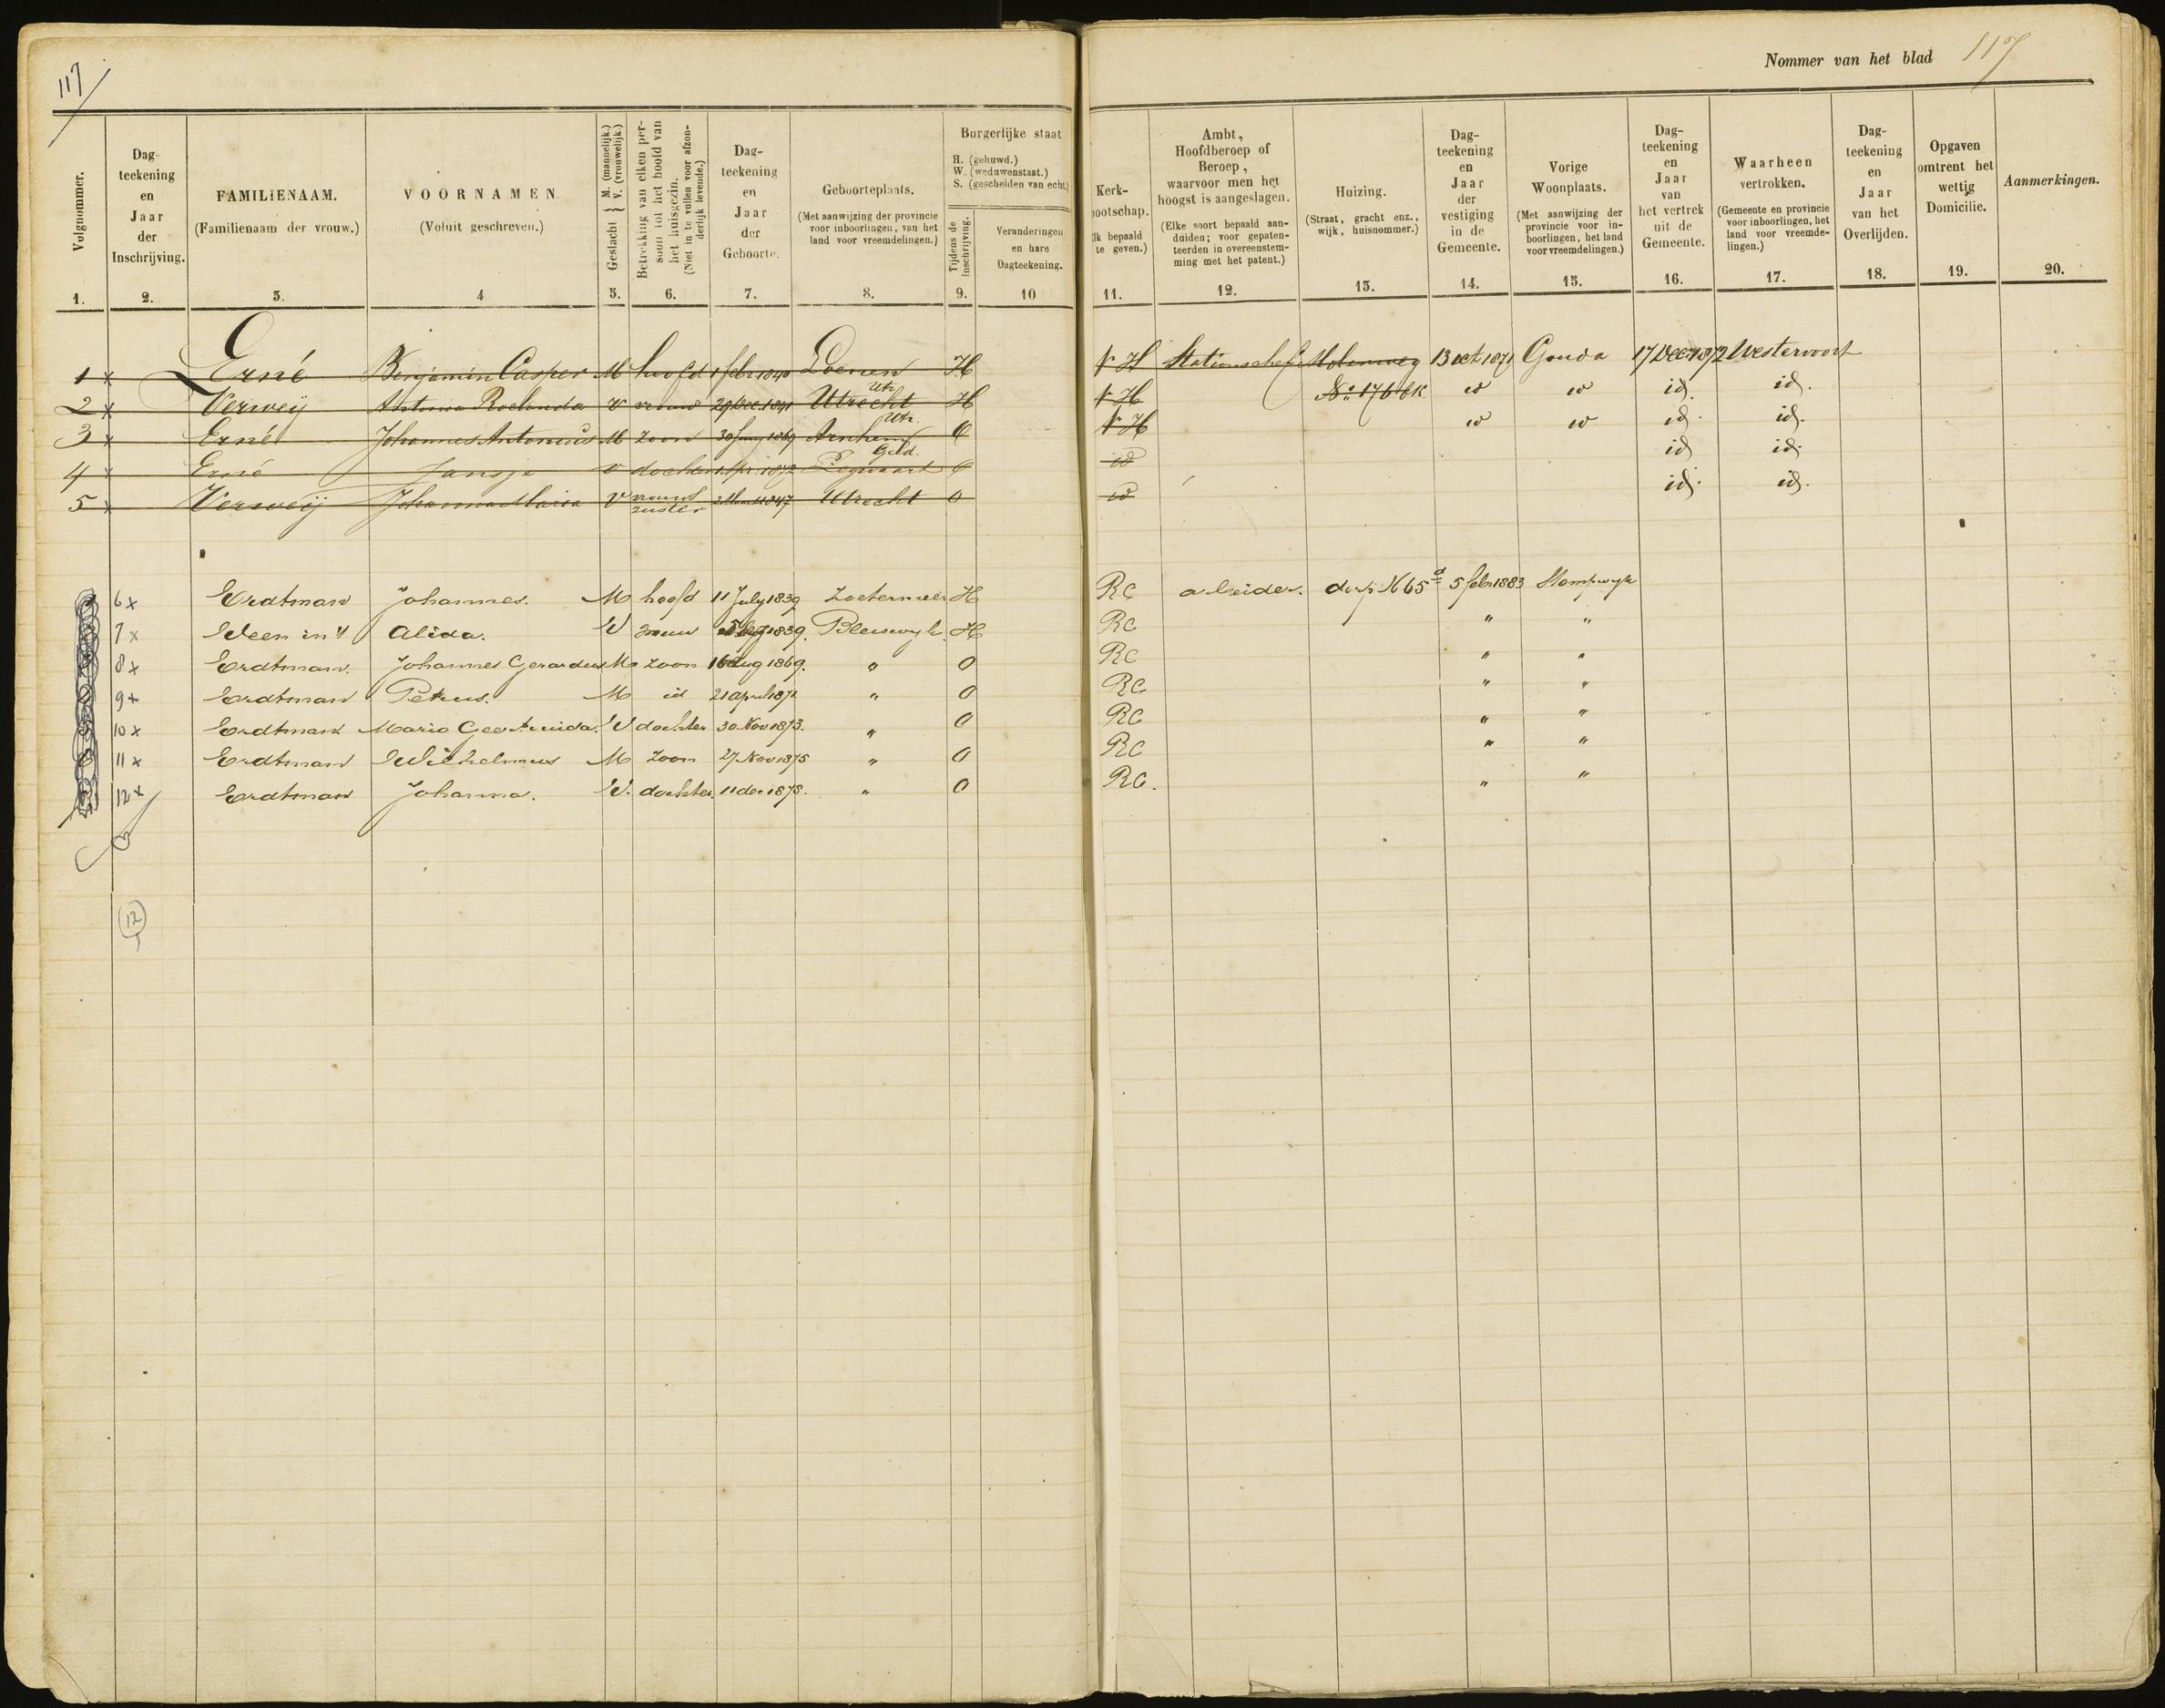 117
Nommer van het blad 117
Volgnommer.
1.
Dag-
teekening
en
Jaar
der
Inschrijving.
2.
FAMILIENAAM.
(Familienaam der vrouw.)
3.
VOORNAMEN
(Voluit geschreven.)
4
Geslacht { M. (mannelijk.) V. (vrouwelijk.)
5.
Betrekking van elken per-
soon tot het hoofd van
het huisgezin.
(Niet in te vullen voor afzon-
derlijk levende.)
6.
Dag-
teekening
en
Jaar
der
Geboorte.
7.
Geboorteplaats.
(Met aanwijzing der provincie
voor inboorlingen, van het
land voor vreemdelingen.)
8.
Burgerlijke staat
H. (gehuwd.)
W. (weduwenstaat.)
S. (gescheiden van echt)
Tijdens de
inschrijving.
9.
Veranderingen
en hare
Dagteekening.
10
Kerk-
nootschap.
lk bepaald
te geven.)
11.
Ambt,
Hoofdberoep of
Beroep,
waarvoor men het
hoogst is aangeslagen.
(Elke soort bepaald aan-
duiden; voor gepaten-
teerden in overeenstem-
ming met het patent.)
12.
Huizing.
(Straat, gracht enz.,
wijk, huisnommer.)
13.
Dag-
teekening
en
Jaar
der
vestiging
in de
Gemeente.
14.
Vorige
Woonplaats.
(Met aanwijzing der
provincie voor in-
boorlingen, het land
voor vreemdelingen.)
15.
Dag-
teekening
en
Jaar
van
het vertrek
uit de
Gemeente.
16.
Waarheen
vertrokken.
(Gemeente en provincie
voor inboorlingen, het
land voor vreemde-
lingen.)
17.
Dag-
teekening
en
Jaar
van het
Overlijden.
18.
Opgaven
omtrent het
wettig
Domicilie.
19.
Aanmerkingen.
20.
1 x Erné Benjamin Casper M hoofd 1 febr 1840 Loenen Utr H N H Stationschef Molenweg 13 oct 1871 Gouda 17 Dec 1872 Westervoort
2 x Verweij Antonia Roelanda V vrouw 29 Dec 1841 Utrecht Utr H N H No 176 id id id. id.
3 x Erné Johannes Antonius M zoon 1869 Arnhem Geld. O N H id id id. id.
4 x Erné Jansje V dochter 1872 O id id id.
5 x Verweij Johanna Maria V vrouws zuster 1847 Utrecht O id id. id.
6 x Erdtman Johannes. M hoofd 11 July 1839 Zoetermeer H RC arbeider. dorp N 65 d 5 febr 1883 Stompwyk
7 x Veen in 't Alida. V vrouw 1839. Bleiswyk. H RC " "
8 x Erdtman. Johannes Gerardus M zoon 16 Aug 1869. " O RC " "
9 x Erdtman Petrus. M id 21 april 1871 " O RC " "
10 x Erdtman Maria Geertruida. V dochter 30 Nov 1873. " O RC " "
11 x Erdtman Wilhelmus M zoon 27 Nov 1875 " O RC " "
12 x Erdtman Johanna. V. dochter. 11 dec 1878. " O RC. " "
12